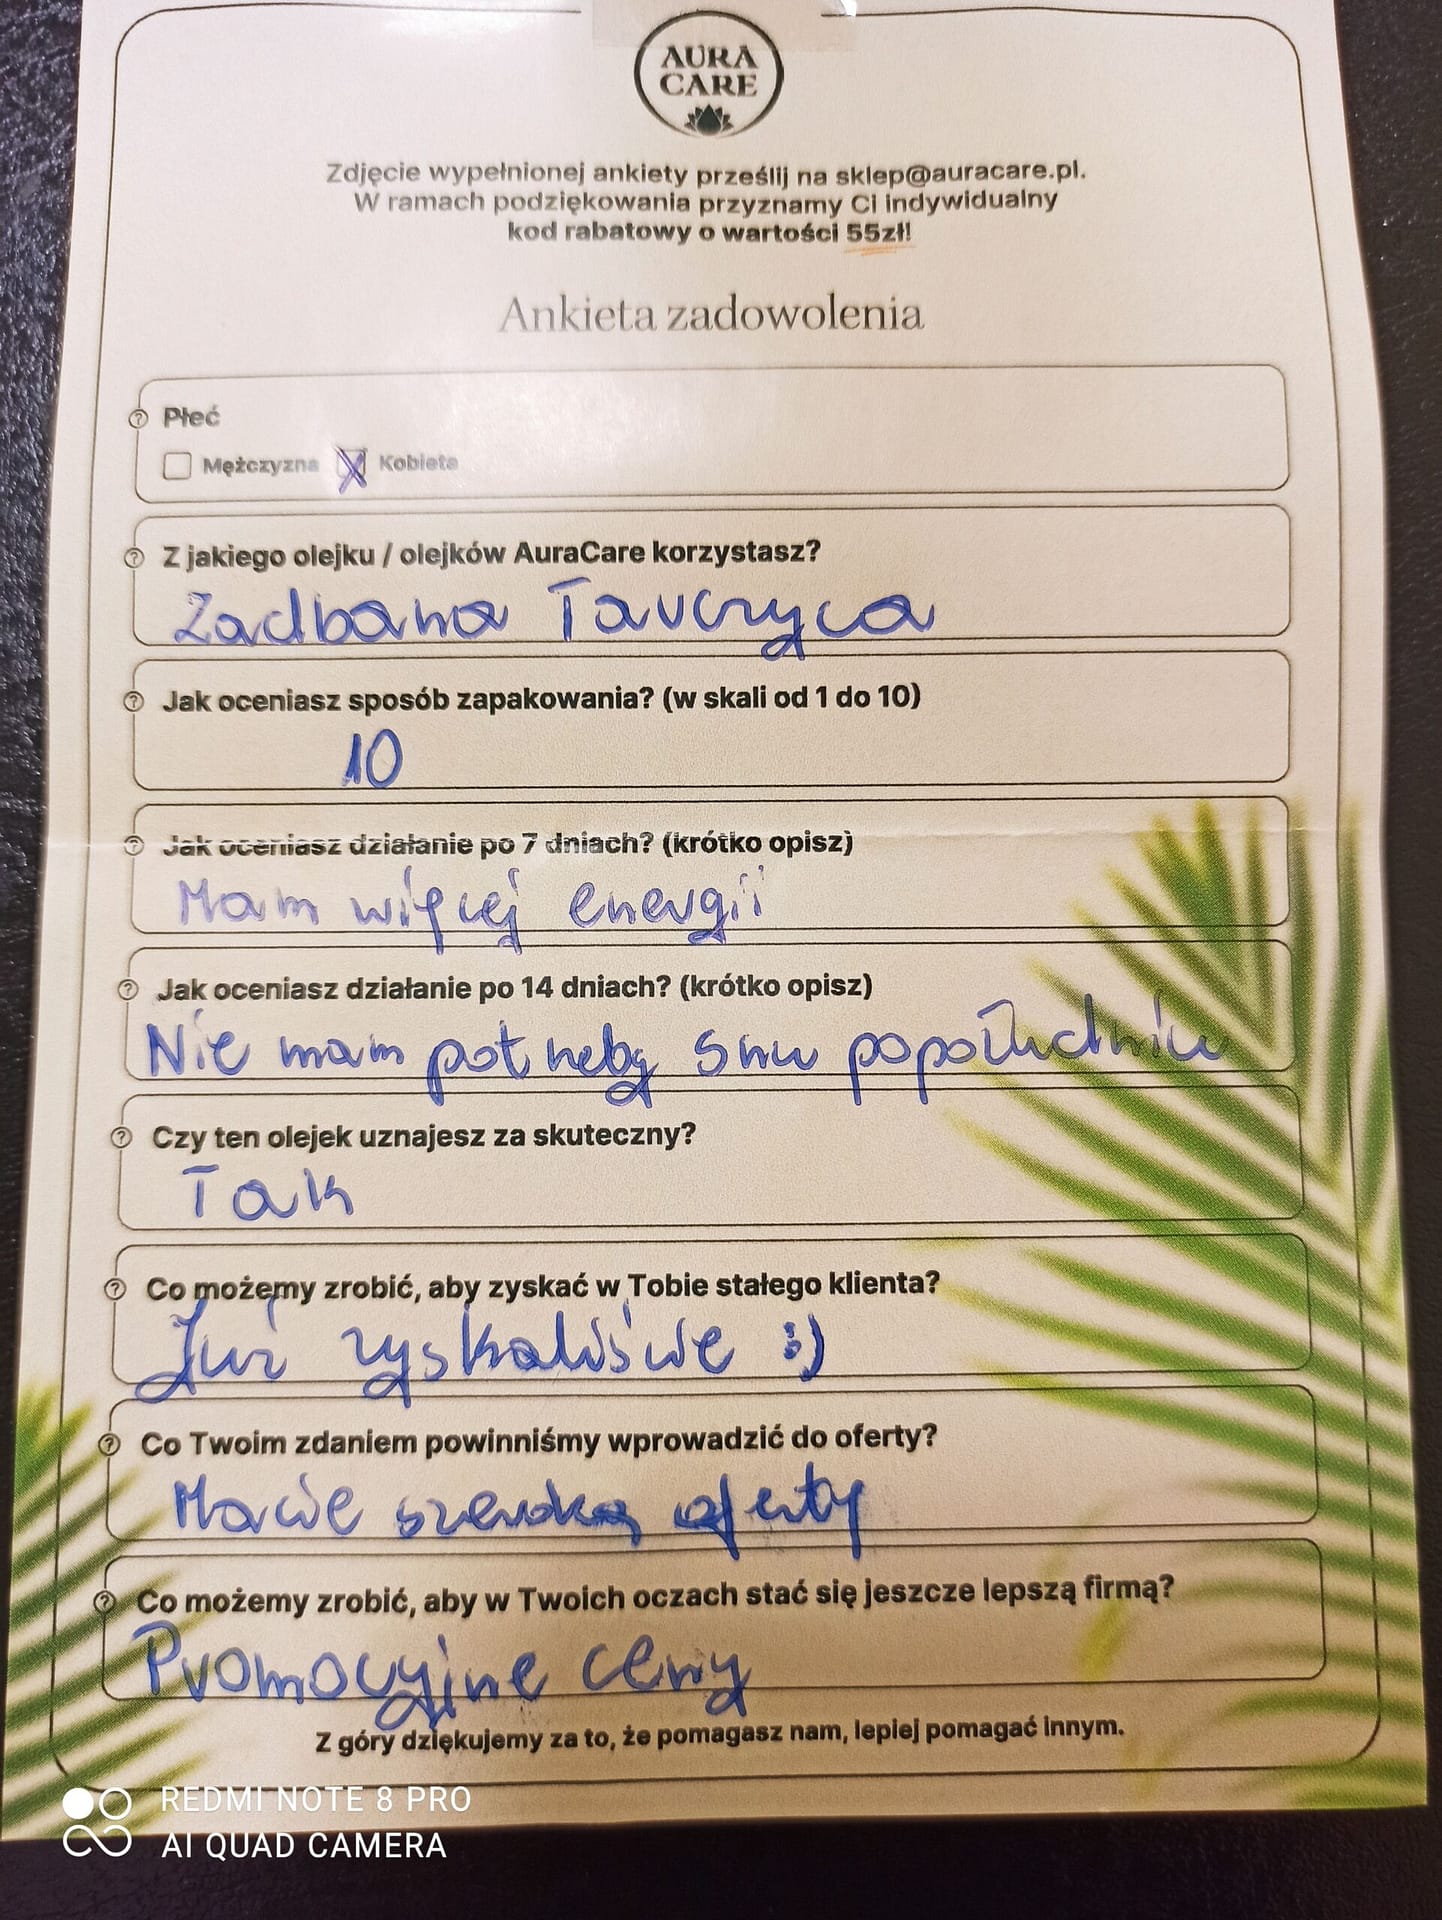 AURA
CARE
Zdjęcie wypełnionej ankiety prześlij na sklep@auracare.pl.
W ramach podziękowania przyznamy Ci indywidualny
kod rabatowy o wartości 55zł!
Ankieta zadowolenia
Płeć
Mężczyzna Kobieta
Z jakiego olejku / olejków AuraCare korzystasz?
Zadbana Tarczyca
Jak oceniasz sposób zapakowania? (w skali od 1 do 10)
10
Jak oceniasz działanie po 7 dniach? (krótko opisz)
Mam więcej energii
Jak oceniasz działanie po 14 dniach? (krótko opisz)
Nie mam potrzeby snu popołudniu
Czy ten olejek uznajesz za skuteczny?
Tak
Co możemy zrobić, aby zyskać w Tobie stałego klienta?
Już zyskaliście :)
Co Twoim zdaniem powinniśmy wprowadzić do oferty?
Macie szeroką oferty
Co możemy zrobić, aby w Twoich oczach stać się jeszcze lepszą firmą?
Promocyjne ceny
Z góry dziękujemy za to, że pomagasz nam, lepiej pomagać innym.
REDMI NOTE 8 PRO
AI QUAD CAMERA